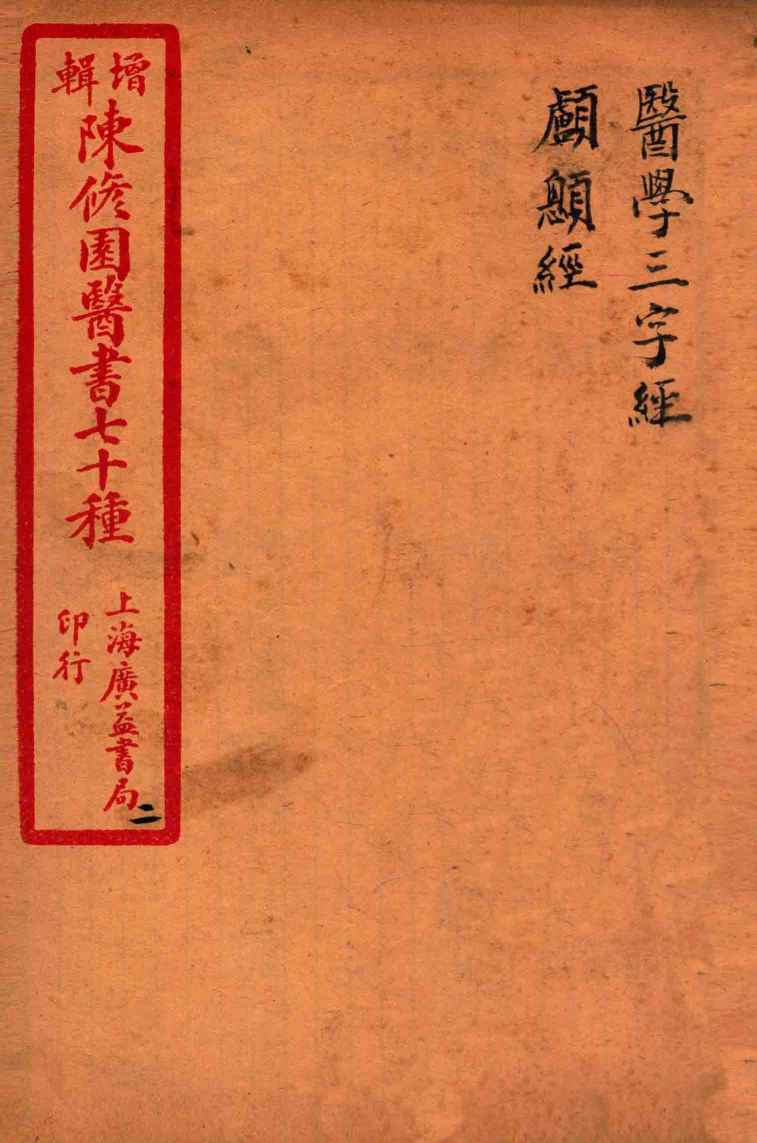 醫學三字經
顱顖經
增輯
陳修園醫書七十種
上海廣益書局
印行
二